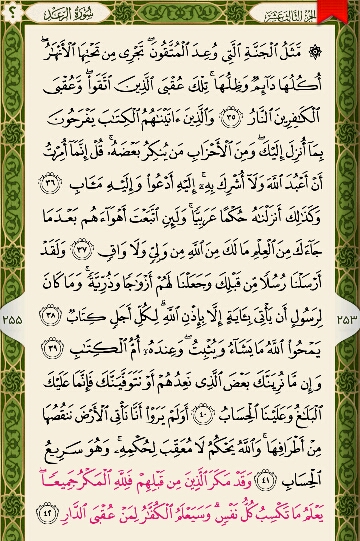 الجزء الثالث عشر
سورة الرعد
؟
۞ مَّثَلُ الْجَنَّةِ الَّتِي وُعِدَ الْمُتَّقُونَ ۖ تَجْرِي مِن تَحْتِهَا الْأَنْهَارُ ۖ
أُكُلُهَا دَائِمٌ وَظِلُّهَا ۚ تِلْكَ عُقْبَى الَّذِينَ اتَّقَوا ۖ وَّعُقْبَى
الْكَافِرِينَ النَّارُ ٣٥ وَالَّذِينَ آتَيْنَاهُمُ الْكِتَابَ يَفْرَحُونَ
بِمَا أُنزِلَ إِلَيْكَ ۖ وَمِنَ الْأَحْزَابِ مَن يُنكِرُ بَعْضَهُ ۚ قُلْ إِنَّمَا أُمِرْتُ
أَنْ أَعْبُدَ اللَّهَ وَلَا أُشْرِكَ بِهِ ۚ إِلَيْهِ أَدْعُوا وَإِلَيْهِ مَآبِ ٣٦
وَكَذَٰلِكَ أَنزَلْنَاهُ حُكْمًا عَرَبِيًّا ۚ وَلَئِنِ اتَّبَعْتَ أَهْوَاءَهُم بَعْدَمَا
جَاءَكَ مِنَ الْعِلْمِ مَا لَكَ مِنَ اللَّهِ مِن وَلِيٍّ وَلَا وَاقٍ ٣٧ وَلَقَدْ
أَرْسَلْنَا رُسُلًا مِّن قَبْلِكَ وَجَعَلْنَا لَهُمْ أَزْوَاجًا وَذُرِّيَّةً ۚ وَمَا كَانَ
لِرَسُولٍ أَن يَأْتِيَ بِآيَةٍ إِلَّا بِإِذْنِ اللَّهِ ۗ لِكُلِّ أَجَلٍ كِتَابٌ ٣٨
يَمْحُوا اللَّهُ مَا يَشَاءُ وَيُثْبِتُ ۖ وَعِندَهُ أُمُّ الْكِتَابِ ٣٩
وَإِن مَّا نُرِيَنَّكَ بَعْضَ الَّذِي نَعِدُهُمْ أَوْ نَتَوَفَّيَنَّكَ فَإِنَّمَا عَلَيْكَ
الْبَلَاغُ وَعَلَيْنَا الْحِسَابُ ٤٠ أَوَلَمْ يَرَوْا أَنَّا نَأْتِي الْأَرْضَ نَنقُصُهَا
مِنْ أَطْرَافِهَا ۚ وَاللَّهُ يَحْكُمُ لَا مُعَقِّبَ لِحُكْمِهِ ۚ وَهُوَ سَرِيعُ
الْحِسَابِ ٤١ وَقَدْ مَكَرَ الَّذِينَ مِن قَبْلِهِمْ فَلِلَّهِ الْمَكْرُ جَمِيعًا ۖ
يَعْلَمُ مَا تَكْسِبُ كُلُّ نَفْسٍ ۗ وَسَيَعْلَمُ الْكُفَّارُ لِمَنْ عُقْبَى الدَّارِ ٤٢
٢٥٣
٢٥٥